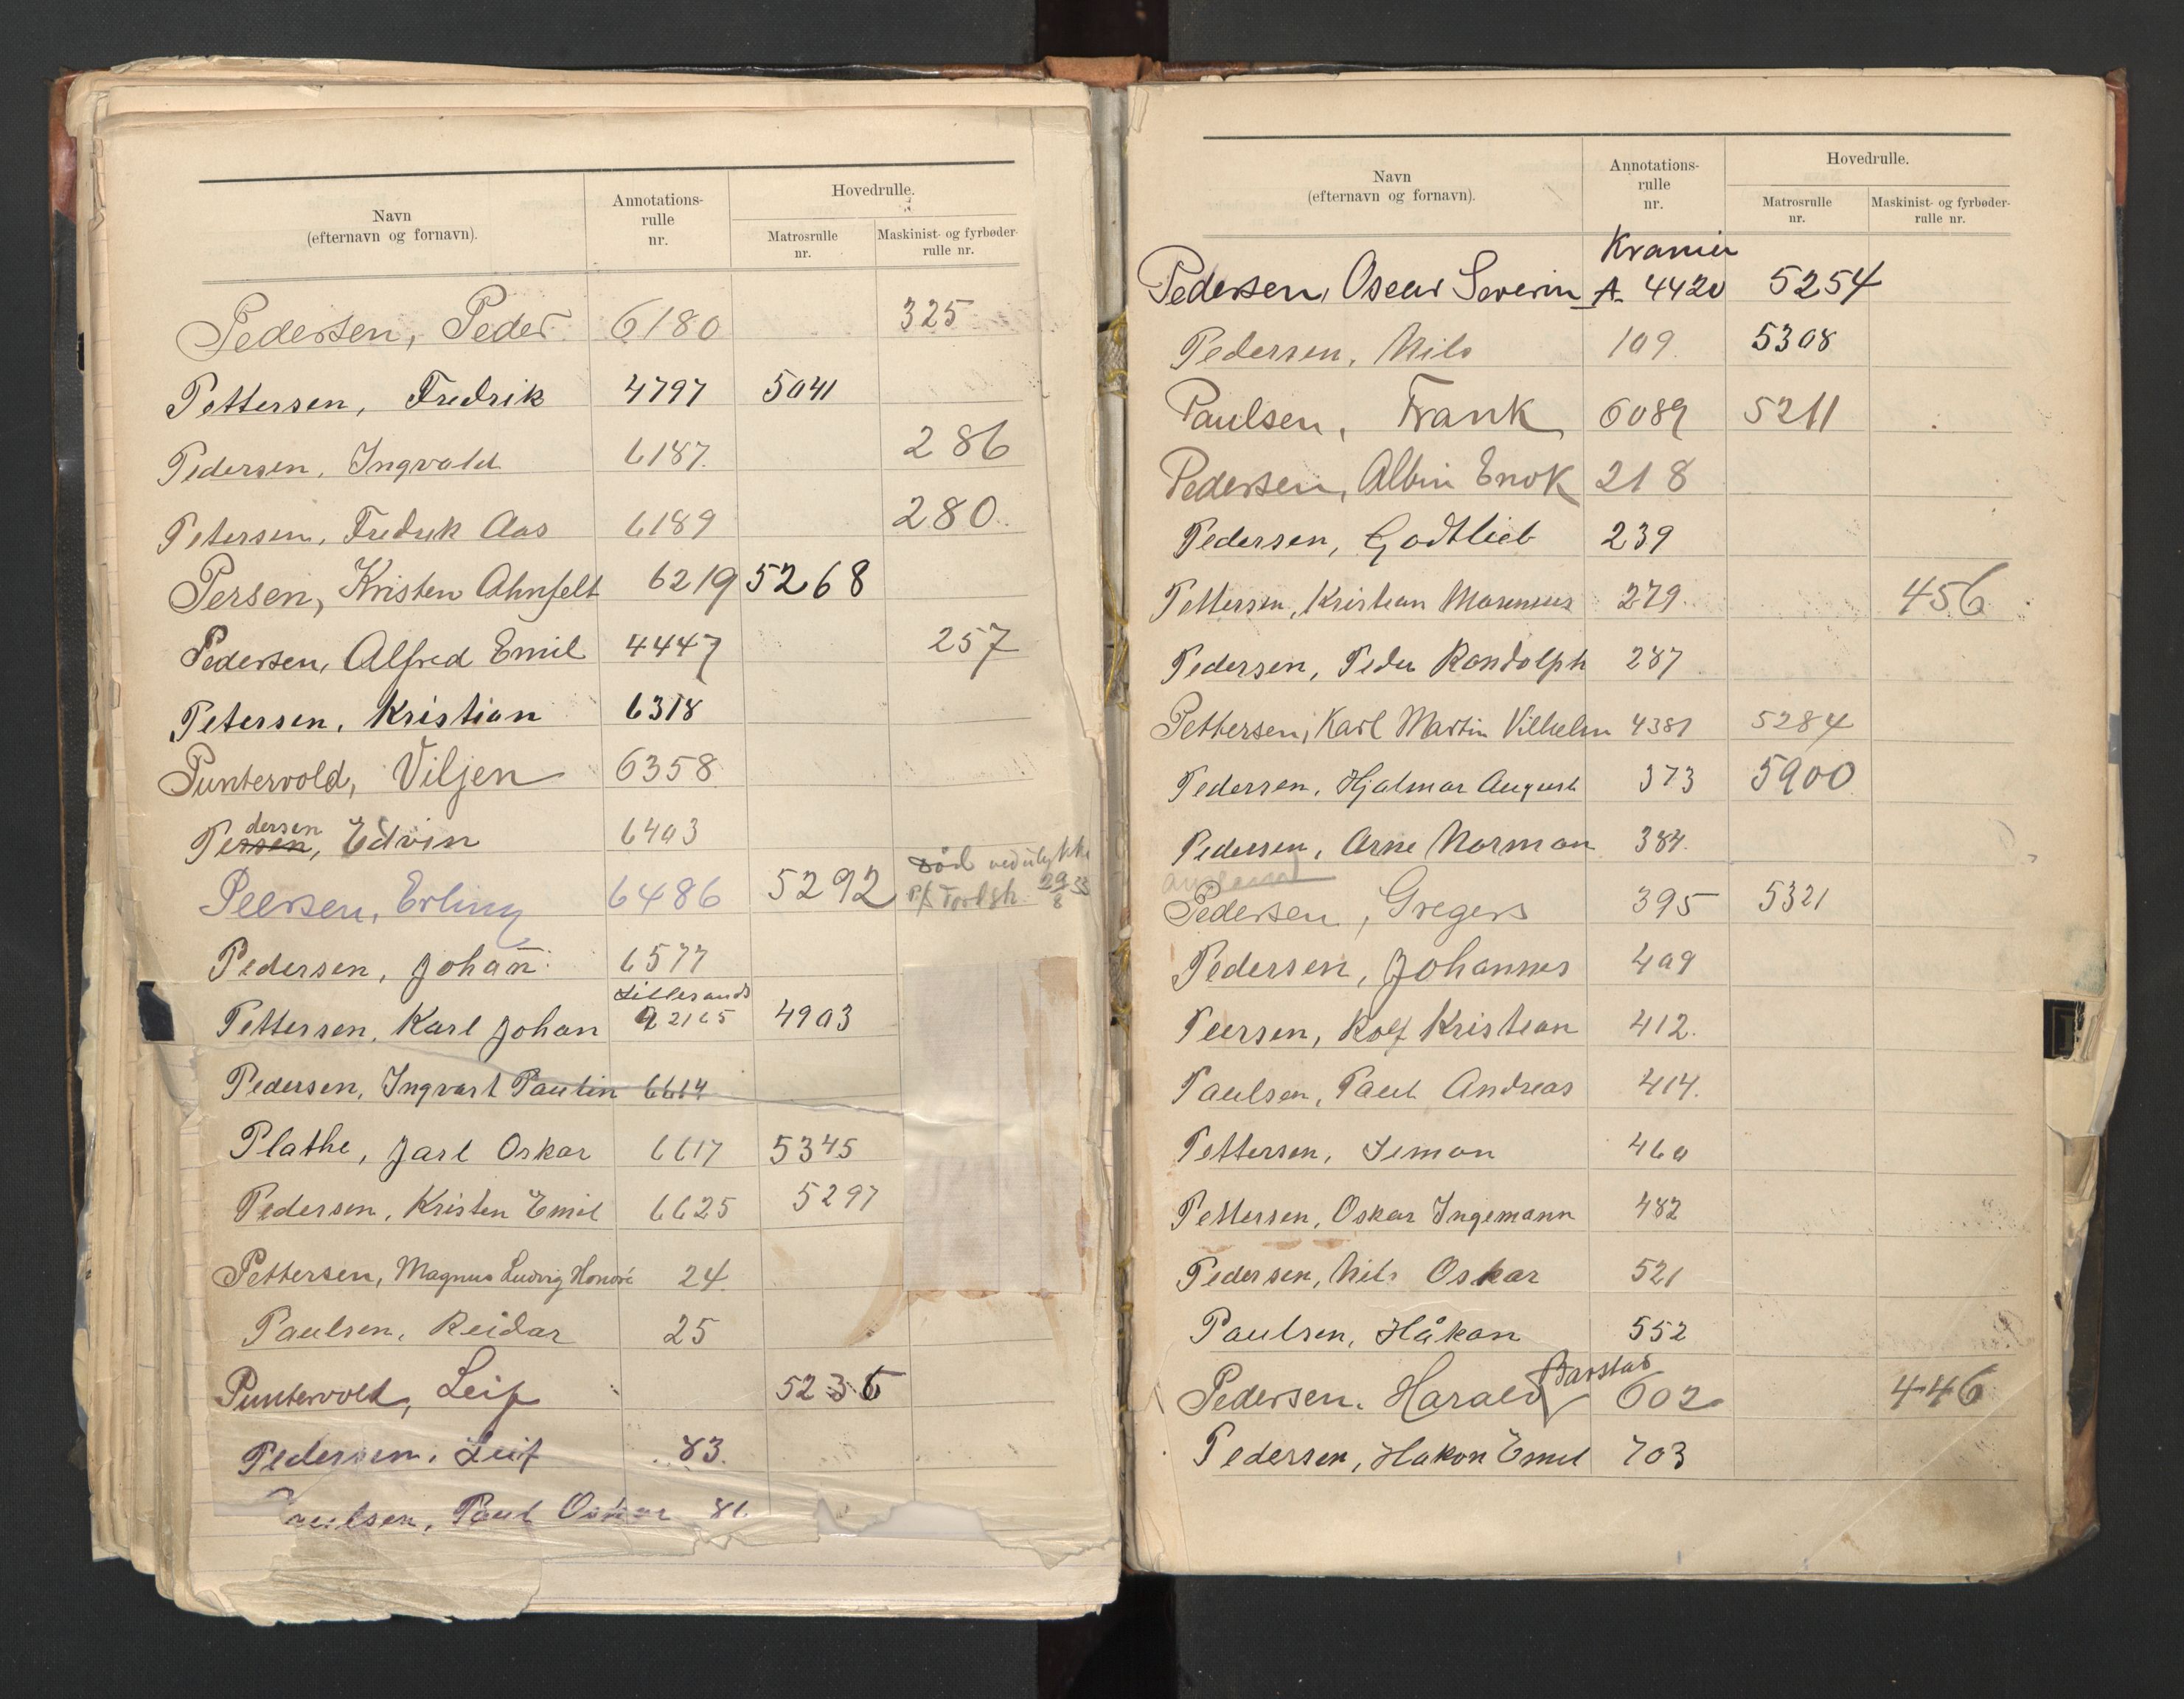 Navn
(efternavn og fornavn).
Annotations-
rulle
nr.
Hovedrulle.
Matrosrulle
nr.
Maskinist- og fyrbøder-
rulle nr.
Pedersen, Peder 6180 325
Pettersen, Fredrik 4797 5041
Pedersen, Ingvald 6187. 286
Petersen, Fredrik Aas 6189 280.
Persen, Kristen Ahnfelt 6219 5268
Pedersen, Alfred Emil 4447 257
Petersen, Kristian 6318
Puntervold, Viljen 6358
dersen
Persen, Edvin 6403
Peersen, Erling 6486 5292 Død ved ulykke
29/8 33
Pedersen, Johan 6577
Lillesands
Pettersen, Karl Johan A 2165 4903
Pedersen, Ingvart Paulin 6614
Plathe, Jarl Oskar 6617 5345
Pedersen, Kristen Emil 6625 5297
Pettersen, Magnus Ludvig Honoré 24.
Paulsen, Reidar 25
Puntervold, Leif 5236
Pedersen, Leif 83.
Paulsen, Paul Oskar 86
Navn
(efternavn og fornavn).
Annotations-
rulle
nr.
Hovedrulle.
Matrosrulle
nr.
Maskinist- og fyrbøder-
rulle nr.
Pedersen, Oscar Severin A. 4420 5254
Pedersen, Nils 109. 5308
Paulsen, Frank 6089 5211
Pedersen, Albin Enok 218
Pedersen, Godtlieb 239
Pettersen, Kristian Marensius 279. 456
Pedersen, Peder Randolph 287
Pettersen, Karl Martin Vilhelm 4381 5284
Pedersen, Hjalmar August 373 5900
Pedersen, Arne Norman 384.
Pedersen, Gregers 395 5321
Pedersen, Johannes 409
Peersen, Rolf Kristian 412.
Paulsen, Paul Andreas 414.
Pettersen, Simon 460
Pettersen, Oskar Ingemann 482
Pedersen, Nils Oskar 521
Paulsen, Håkon 552
Barstad
Pedersen, Harald 602 446
Pedersen, Hakon Emil 703